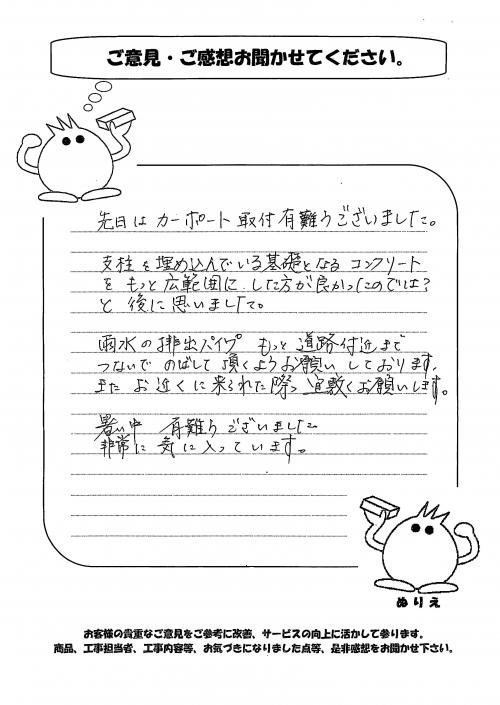 ご意見・ご感想お聞かせてください。
先日は カーポート 取付 有難うございました。
支柱を埋め込んでいる基礎となる コンクリート
を もっと 広範囲に した方が良かったのでは?
と 後に思いました。
雨水の排出パイプ もっと 道路付近まで
つないで のばして 頂くようお願い しております。
また お近くに来られた際 宜敷くお願いします。
暑い中 有難うございました
非常に 気に入っています。
ぬりえ
お客様の貴重なご意見をご参考に改善、サービスの向上に活かして参ります。
商品、工事担当者、工事内容等、お気づきになりました点等、是非感想をお聞かせ下さい。